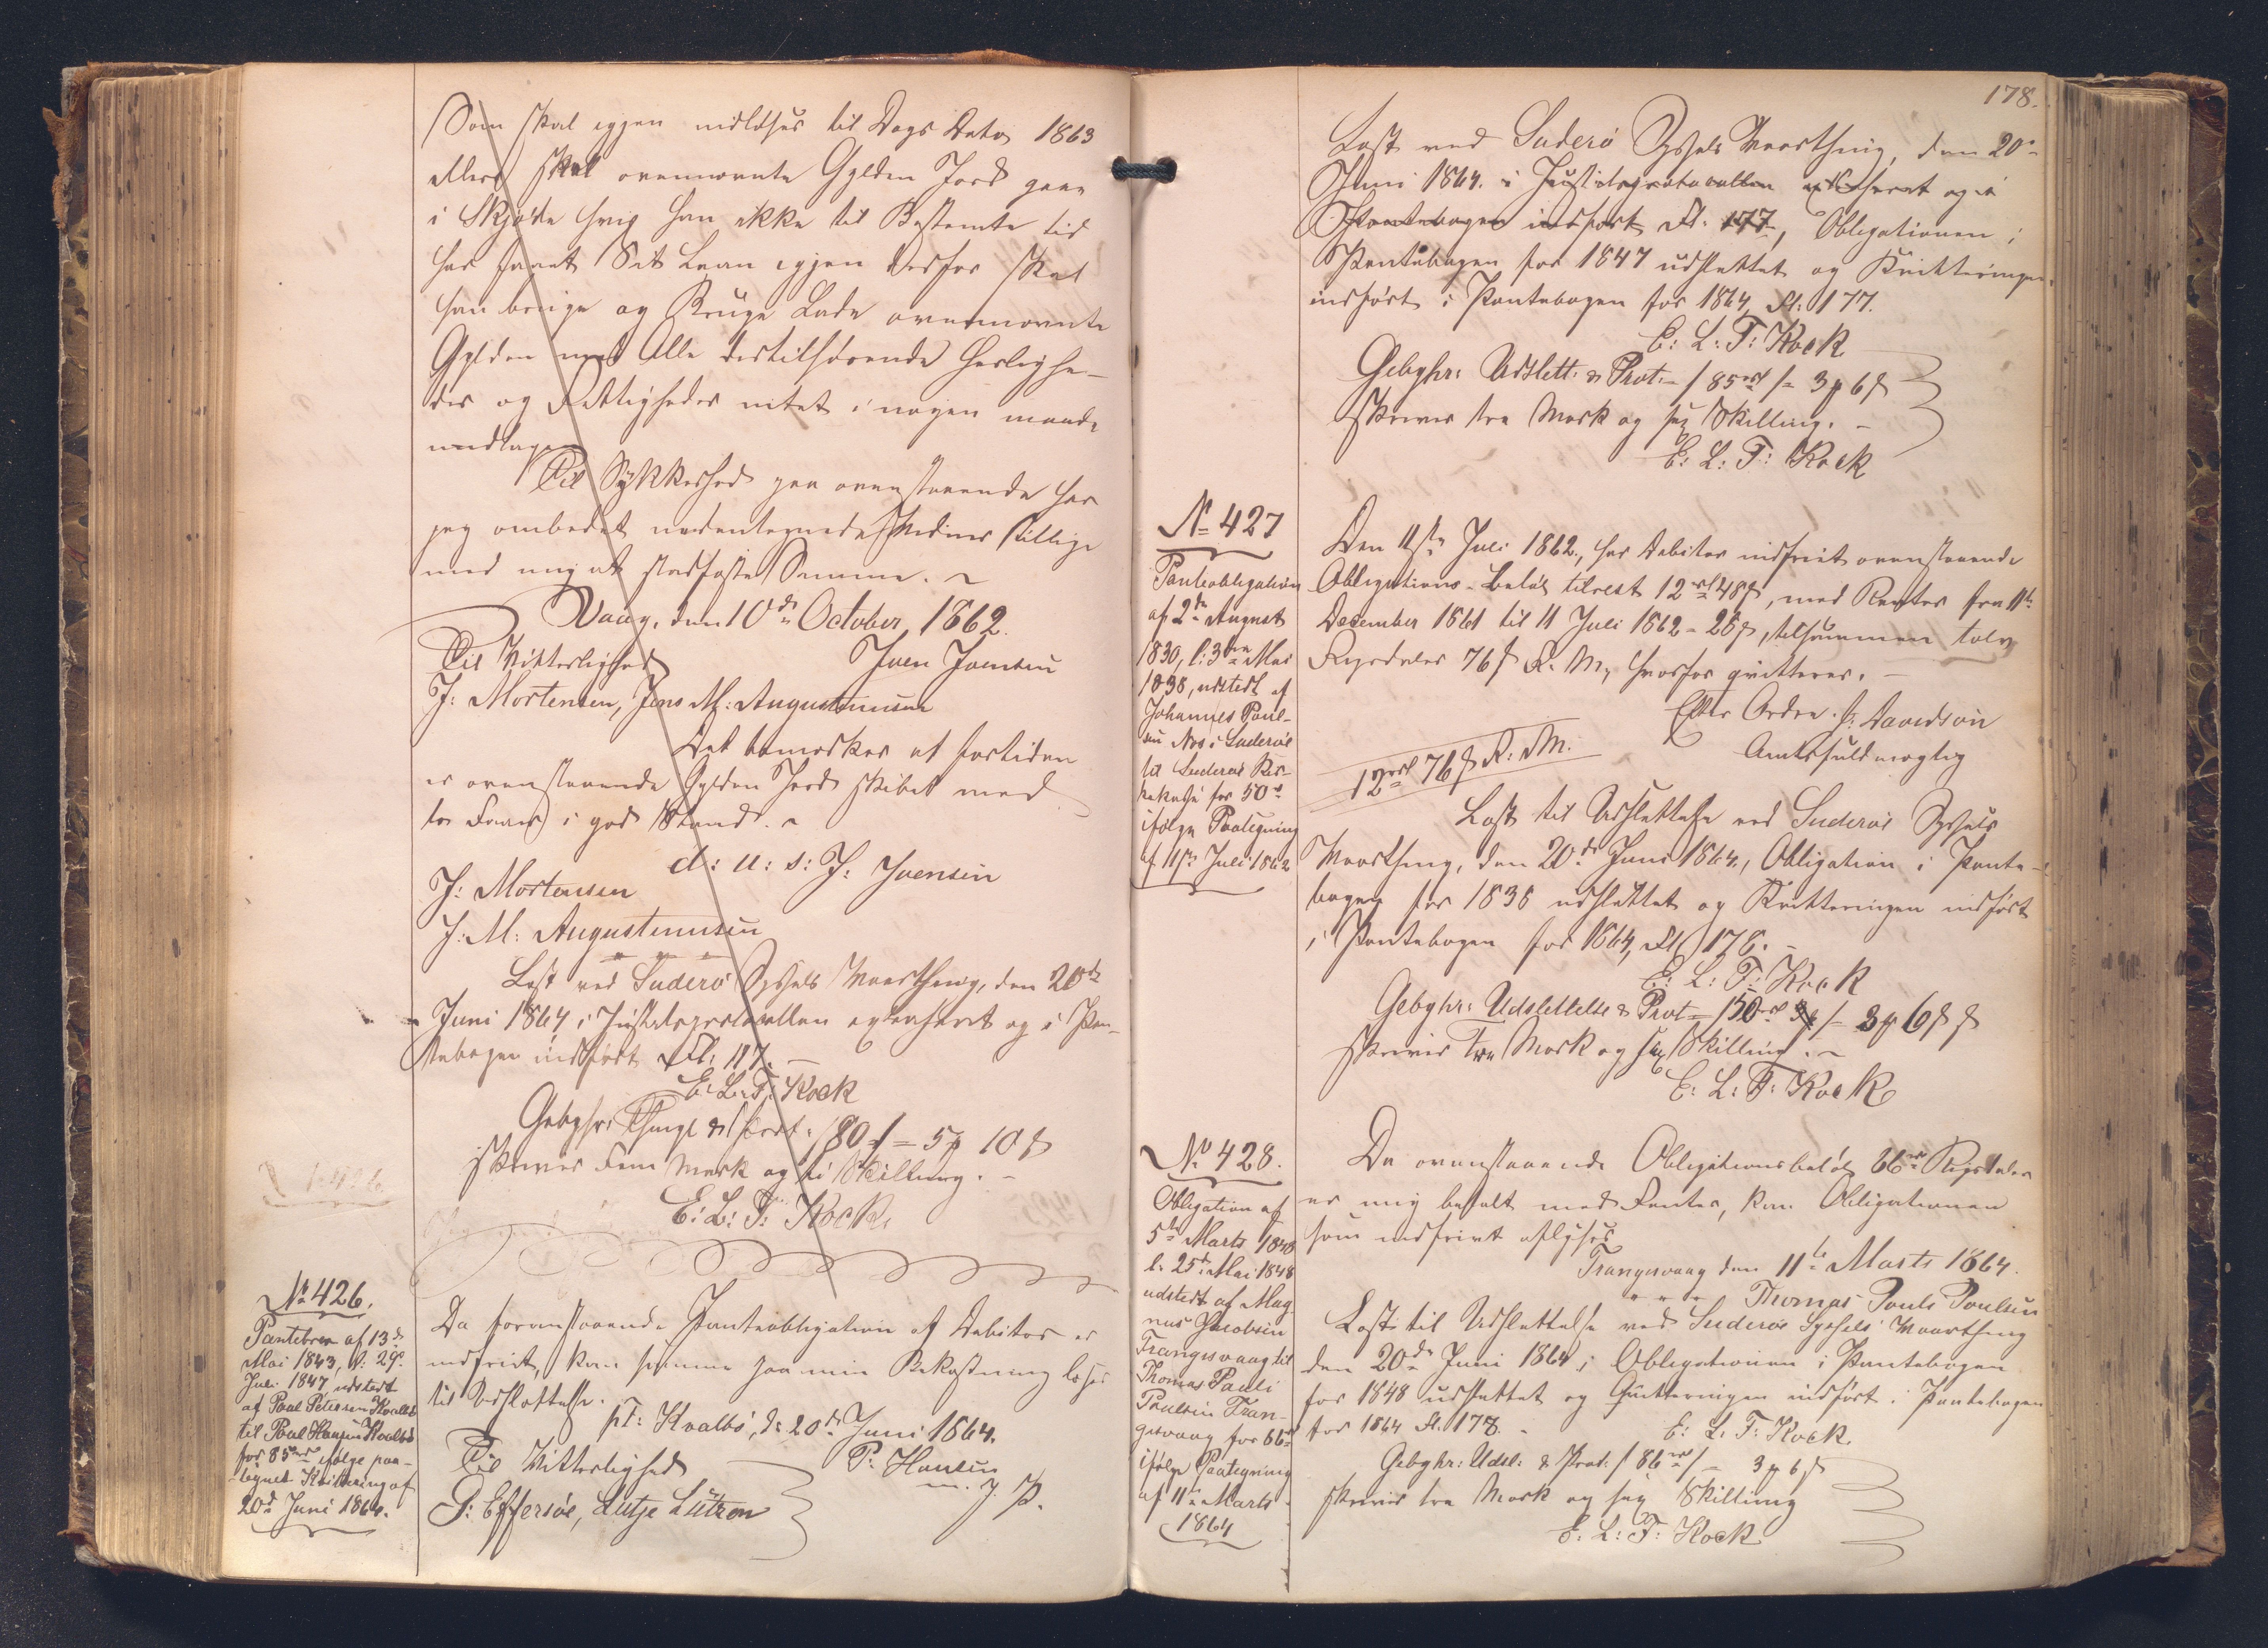 Som skal igjen indløses til Dags Dato 1863
ellers skal ovennævnte Gylden Jord gaae
i Skjøde hvis han ikke til Bestemte tid
har faaet Sit Laan igjen Derfor skal
han bruge og Bruge Lade ovennævnte
Gylden med Alle dertilhørende Herlighe-
der og Rettigheder intet i nogen maade
undtagen
Til Sikkerhed paa ovenstaaende har
jeg ombedet undertegnede Mænd tillige
med mig at stadfæste Samme.
Vaag, den 10de October 1862.
Til Vitterlighed Joen Joensen
J: Mortensen, Jens M: Augustinusen
Det bemærkes at fortiden
er ovenstaaende Gylden Jord skibet med
to Faar i god Stand.
d: u: s: J: Joensen
J: Mortensen
J: M: Augustinusen
Læst ved Suderø Syssels Vaarthing, den 20de
Juni 1864 i Justitsprotocollen extraheret og i Pan-
tebogen indført Fl: 177.
E: L: T: Kock
Gebyhr: Thingl & Prot: /80/ = 5 [mk] 10 ß
skriver Fem Mark og ti Skilling.
E: L: T: Kock
No 426.
Pantebrev af 13de
Mai 1843, l: 29de
Juli 1847, udstedt
af Poul Petersen Kvalbø
til Poul Hansen Kvalbø
for 85 rd ifølge paa-
tegnet Kvittering af
20de Juni 1864.
Da foranstaaende Panteobligation af Debitor er
indfriet, kan samme paa min Bekostning læses
til Udslettelse.
pt: Kvalbø, d: 20de Juni 1864.
Til Vitterlighed P: Hansen
m. f. P.
P: Effersøe, Lütje Lützen
178.
Læst ved Suderø Syssels Vaarthing, den 20de
Juni 1864. i Justitsprotocollen extraheret og i
Pantebogen indført Fl. 177, Obligationen i
Pantebogen for 1847 udslettet og Kvitteringen
indført i Pantebogen for 1864, Fl: 177.
E: L: T: Kock
Gebyhr: Udslett: & Prot: /85 rd/ = 3 [mk] 6 ß
skriver tre Mark og sex Skilling.
E: L: T: Kock
No 427
Panteobligation
af 2den August
1830, l: 3die Mai
1838, udstedt af
Johannes Poul-
sen Næs i Suderøe
til Suderøe Rep-
sekasse for 50 rd
ifølge Paategning
af 11te Juli 1862
Den 11te Juli 1862, har Debitor indfriet ovenstaaende
Obligations-Beløb tilrest 12 rd 48 ß, med Renter fra 11te
December 1861 til 11 Juli 1862 = 28 ß, tilsammen tolv
Rigsdaler 76 ß R. M., hvorfor qvitteres.
Efter Ordre J: Davidson
Amtsfuldmægtig
12 rd 76 ß R: M.
Læst til Udslettelse ved Suderøe Syssels
Vaarthing, den 20de Juni 1864., Obligation i Pante-
bogen for 1838 udslettet og Kvitteringen indført
i Pantebogen for 1864, Fl. 178.
E: L: T: Kock
Gebyhr: Udslettelse & Prot = /50 rd/ = 3 [mk] 6 ß
skriver Tre Mark og sex Skilling.
E: L: T: Kock
No 428.
Obligation af
5te Marts 1848
l: 25de Mai 1848
udstedt af Mag-
nus Jacobsen
Trangisvaag til
Thomas Pauli
Poulsen Tran-
gisvaag for 86 rd
ifølge Paategning
af 11te Marts
1864
Da ovenstaaende Obligationsbeløb 86 rd Rigsdaler
er mig betalt med Renter, kan Obligationen
som indfriet aflyses
Trangisvaag den 11te Marts 1864.
Thomas Pauli Poulsen
Læst til Udslettelse ved Suderøe Syssels Vaarthing
den 20de Juni 1864, Obligationen i Pantebogen
for 1848 udslettet og Qvitteringen indført i Pantebogen
for 1864 Fl. 178.
E: L: T: Kock.
Gebyhr: Udsl: & Prot: /86 rd/ = 3 [mk] 6 ß
skriver tre Mark og sex Skilling
E: L: T: Kock